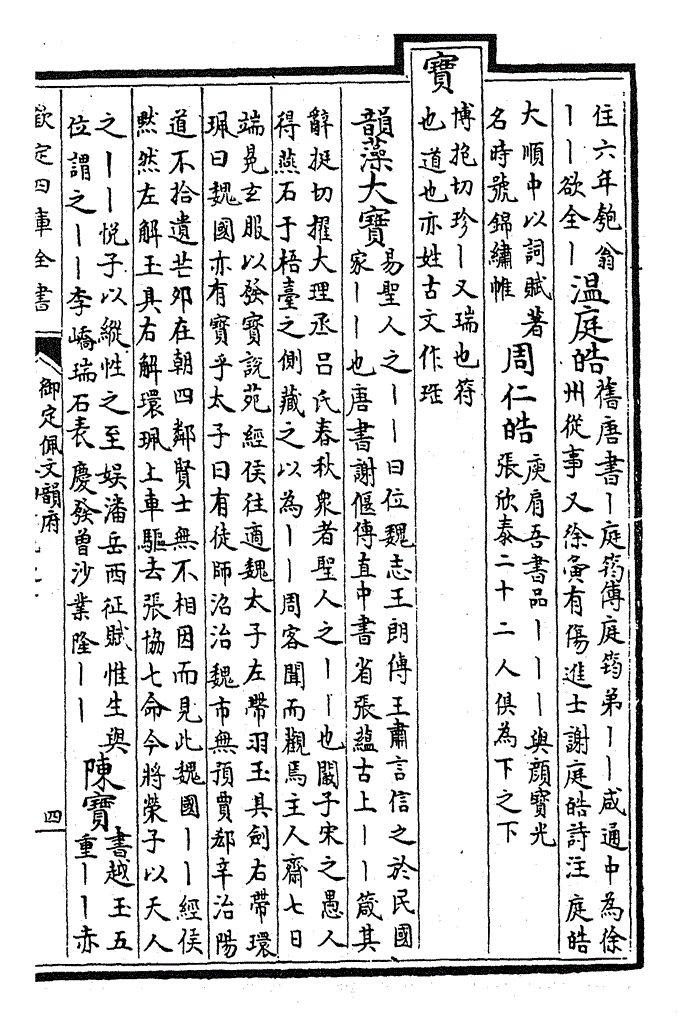 住六年匏翁
丨丨欲全丨溫庭皓舊唐書丨庭筠傳庭筠弟丨丨咸通中為徐
州從事又徐夤有傷進士謝庭皓詩注庭皓
大順中以詞賦著
名時號錦繡帷周仁皓庾肩吾書品丨丨丨與顔寶光
張欣泰二十二人俱為下之下
寶
博抱切珍丨又瑞也符
也道也亦姓古文作珤
韻藻大寶易聖人之丨丨曰位魏志王朗傳王肅言信之於民國
家丨丨也唐書謝偃傳直中書省張蘊古上丨丨箴其
辭挺切擢大理丞呂氏春秋衆者聖人之丨丨也闞子宋之愚人
得燕石于梧臺之側藏之以為丨丨周客聞而觀焉主人齋七日
端冕玄服以發寶說苑經侯往適魏太子左帶羽玉具劍右帶環
珮曰魏國亦有寶乎太子曰有徒師沿治魏市無預賈郄辛治陽
道不拾遺芒夘在朝四鄰賢士無不相因而見此魏國丨丨經侯
黙然左解玉具右解環珮上車驅去張協七命今將榮子以天人
之丨丨悅子以縱性之至娛潘岳西征賦惟生與
位謂之丨丨李嶠瑞石表慶發曾沙業隆丨丨陳寶書越玉五
重丨丨赤
欽定四庫全書
御定佩文韻府
四